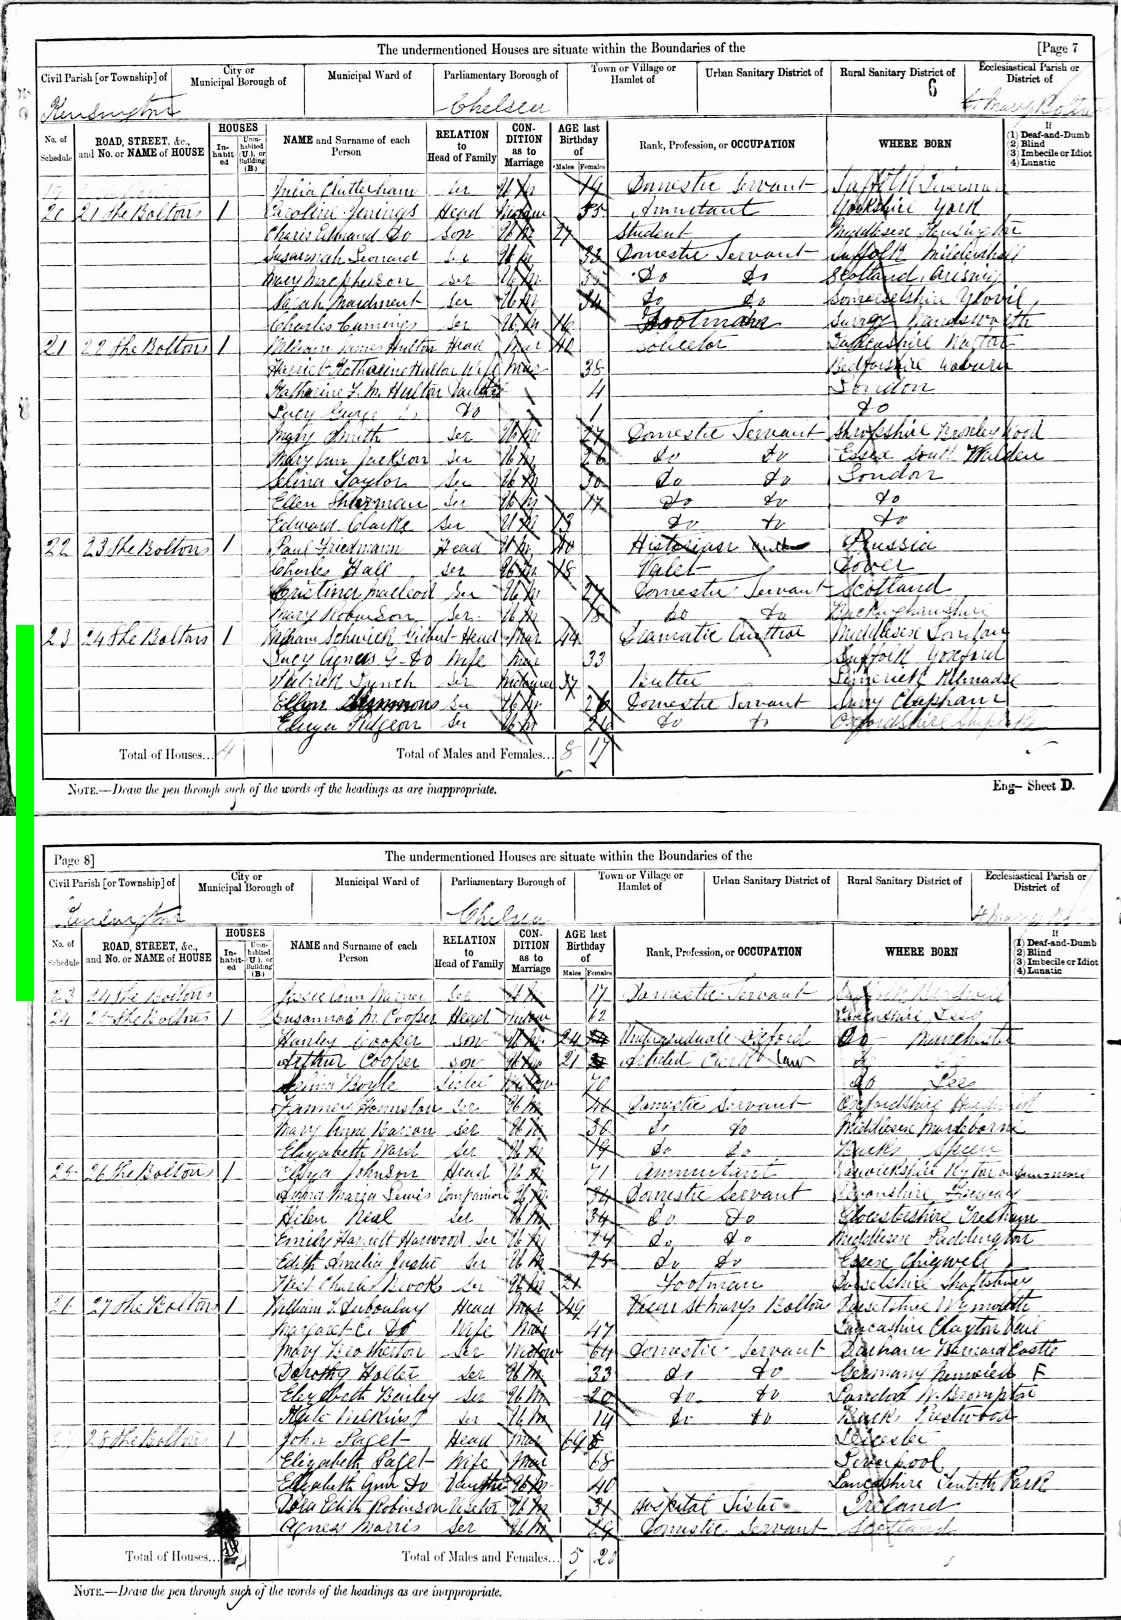 The undermentioned Houses are situate within the Boundaries of the [Page 7
Civil Parish [or Township] of City or Municipal Borough of Municipal Ward of Parliamentary Borough of Town or Village or Hamlet of Urban Sanitary District of Rural Sanitary District of Ecclesiastical Parish or District of
Kensington Chelsea 6 St Mary Boltons
No. of Schedule ROAD, STREET, &c., and No. or NAME of HOUSE HOUSES Inhabited Uninhabited (U.), or Building (B.) NAME and Surname of each Person RELATION to Head of Family CONDITION as to Marriage AGE last Birthday of Males Females Rank, Profession, or OCCUPATION WHERE BORN If (1) Deaf-and-Dumb (2) Blind (3) Imbecile or Idiot (4) Lunatic
19 Julia Clutterham Ser Unm 19 Domestic Servant Suffolk
20 21 The Boltons 1 Caroline Jenings Head Widow 55 Annuitant Yorkshire York
Charles Edmund Do Son Unm 27 Student Middlesex Kensington
Susannah Leonard Ser Unm 32 Domestic Servant Suffolk Mildenhall
Mary Macpherson Ser Unm 35 Do Do Scotland
Sarah Maidment Ser Unm 34 Do Do Somersetshire Yeovil
Charles Cumings Ser Unm 16 Footman Surrey Wandsworth
21 22 The Boltons 1 William James Hulton Head Mar 40 Solicitor Lancashire
Harriet Katharine Hulton Wife Mar 38 Bedfordshire Woburn
Katharine F. M. Hulton Daughter 4 London
Lucy Do 1 Do
Mary Smith Ser Unm 27 Domestic Servant Shropshire Wood
Mary Ann Jackson Ser Unm 26 Do Do Essex South Walden
Selina Taylor Ser Unm 30 Do Do London
Ellen Sherman Ser Unm 17 Do Do Do
Edward Clarke Ser Unm 13 Do Do Do
22 23 The Boltons 1 Paul Friedmann Head Unm 40 Historian Prussia
Charles Hall Ser Unm 18 Valet Dover
Cristina Macleod Ser Unm 27 Domestic Servant Scotland
Mary Robinson Ser Unm 18 Do Do Buckinghamshire
23 24 The Boltons 1 William Schwick Gilbert Head Mar 44 Dramatic Author Middlesex London
Lucy Agnes G Do Wife Mar 33 Suffolk Yoxford
Patrick Lynch Ser Widower 37 Butler Limerick
Ellen Simmons Ser Unm 26 Domestic Servant Surry Clapham
Eliza Pidgeon Ser Unm 26 Do Do Oxfordshire
Total of Houses... 4 Total of Males and Females... 8 17
NOTE.—Draw the pen through such of the words of the headings as are inappropriate.
Eng— Sheet D.
Page 8] The undermentioned Houses are situate within the Boundaries of the
Civil Parish [or Township] of City or Municipal Borough of Municipal Ward of Parliamentary Borough of Town or Village or Hamlet of Urban Sanitary District of Rural Sanitary District of Ecclesiastical Parish or District of
Kensington Chelsea St Mary
No. of Schedule ROAD, STREET, &c., and No. or NAME of HOUSE HOUSES Inhabited Uninhabited (U.), or Building (B.) NAME and Surname of each Person RELATION to Head of Family CONDITION as to Marriage AGE last Birthday of Males Females Rank, Profession, or OCCUPATION WHERE BORN If (1) Deaf-and-Dumb (2) Blind (3) Imbecile or Idiot (4) Lunatic
23 24 The Boltons Ann Warner Ser Unm 17 Domestic Servant
24 25 The Boltons 1 Susannah M. Cooper Head Widow 62 Lancashire Lees
Hanley Cooper Son Unm 24 Undergraduate Oxford Do Manchester
Arthur Cooper Son Unm 21 Articled Clerk Law Do Do
Selina Boyle Sister Widow 70 Do Lees
Fanney Ser Unm 41 Domestic Servant Oxfordshire
Mary Anne Barron Ser Unm 30 Do Do Middlesex Marlebone
Elizabeth Ward Ser Unm 19 Do Do Bucks Speen
25 26 The Boltons 1 Johnson Head Unm 71 Annuitant Warwickshire Ryton on Dunsmore
Anna Maria Lewis Companion Unm 34 Domestic Servant Devonshire
Helen Neal Ser Unm 34 Do Do Glocestershire Tresham
Emily Harriett Harwood Ser Unm 24 Do Do Middlesex Paddington
Edith Amelia Justice Ser Unm 25 Do Do Essex Chigwell
West Charles Brooks Ser Unm 21 Footman Dorsetshire Shaftsbury
26 27 The Boltons 1 William T. Duboulay Head Mar 49 Vicar St Marys Boltons Dorsetshire Weymouth
Margaret C. Do Wife Mar 47 Lancashire Clayton Vale
Mary Brotherton Ser Widow 64 Domestic Servant Durham Barnard Castle
Dorothy Holler Ser Unm 33 Do Do Germany F
Elizabeth Bailey Ser Unm 20 Do Do London W. Brompton
Kate Wilkins Ser Unm 14 Do Do Bucks Prestwood
27 28 The Boltons 1 John Paget Head Mar 69 Leicester
Elizabeth Paget Wife Mar 68 Liverpool
Elizabeth Ann Do Daughter Unm 40 Lancashire Park
Dora Edith Robinson Visitor Unm 31 Hospital Sister Ireland
Agness Morris Ser Unm 29 Domestic Servant Scotland
Total of Houses... Total of Males and Females... 5 20
NOTE.—Draw the pen through such of the words of the headings as are inappropriate.